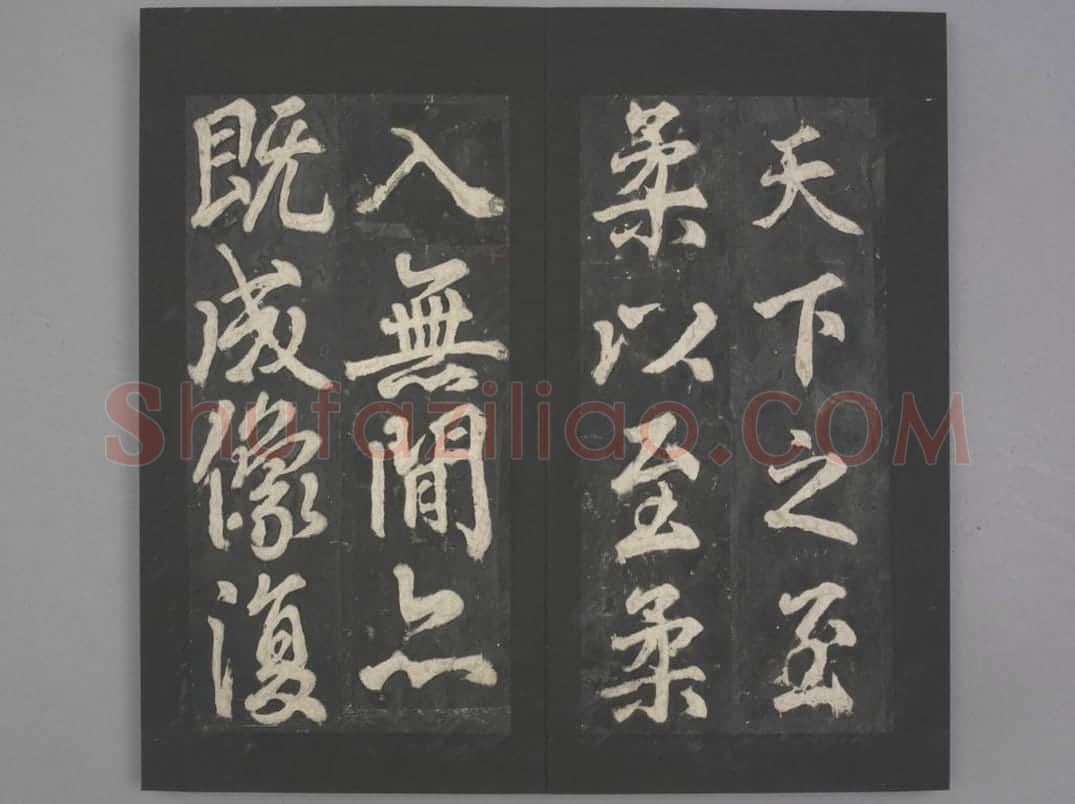 天下之至
柔以至柔
入無閒亦
既成像復
Shufaziliao.COM